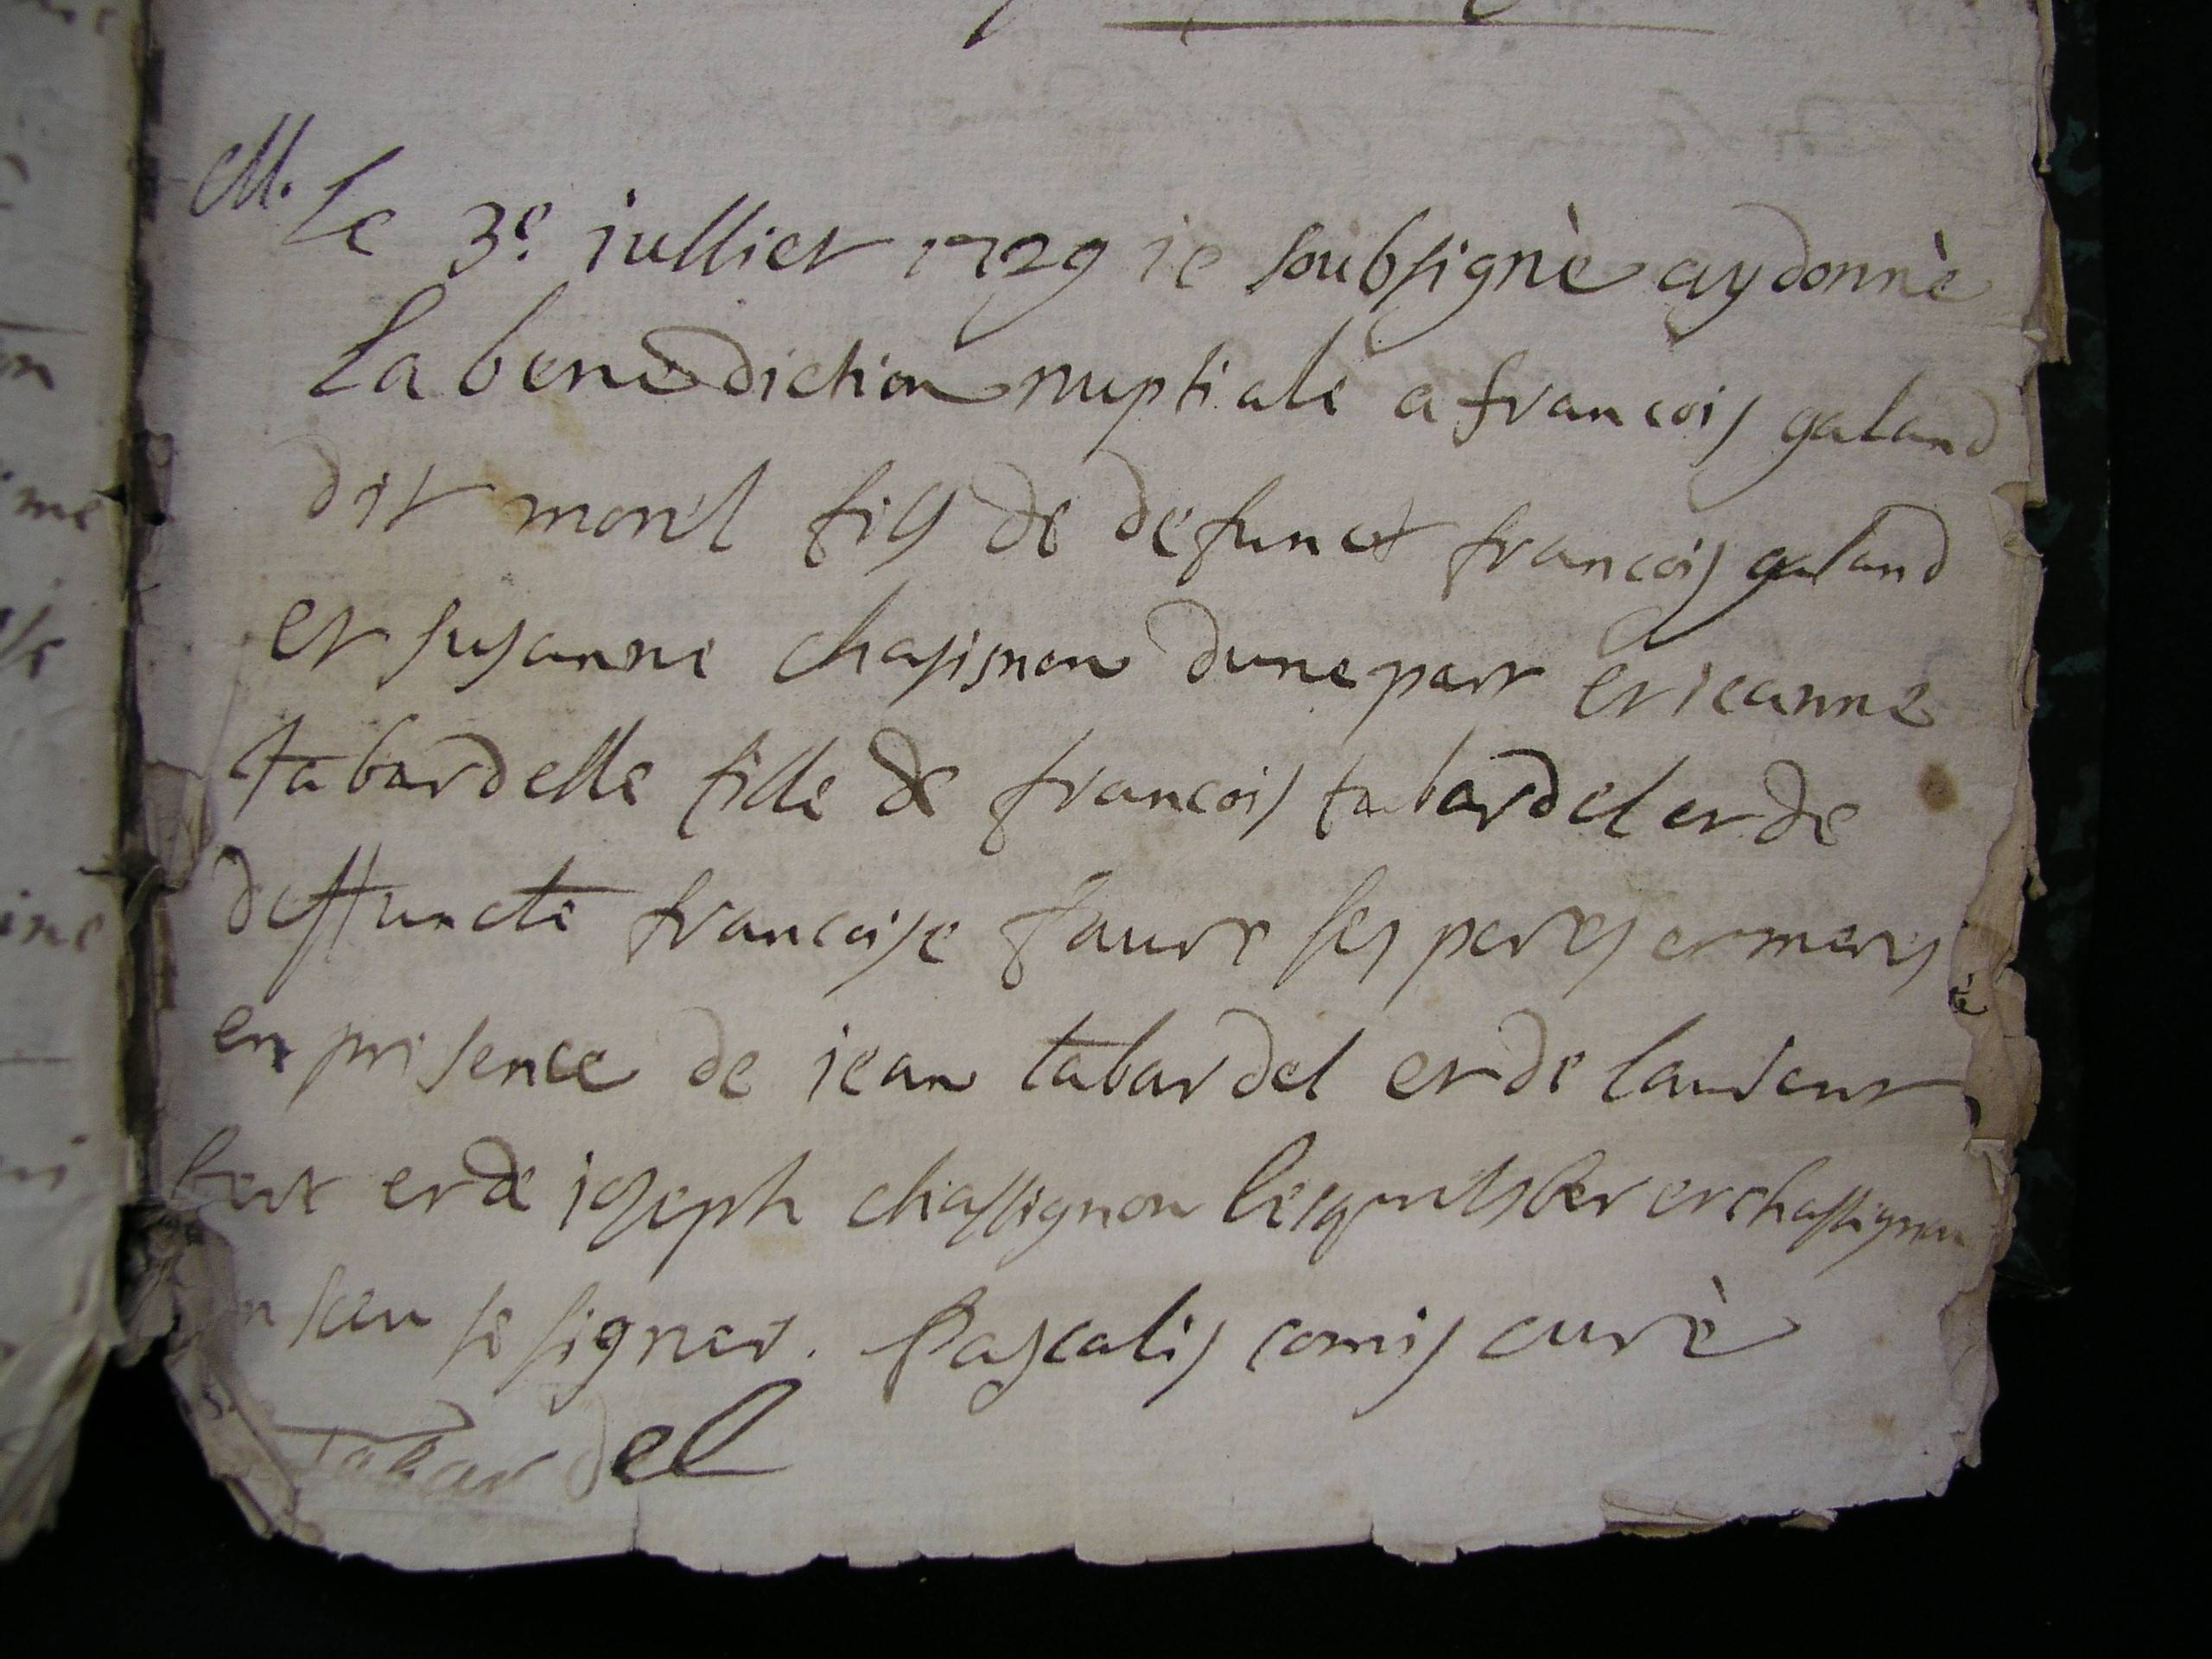 M. Le 3e jullier 1729 je soubsignè ay donnè
La benediction nuptiale a francois galand
dit morél fils de defunct francois galand
et susanne chasignon dune part et jeanne
tabardelle fille de francois tabardel et de
deffuncte francoise faure ses peres et meres
en presence de jean tabardel et de laurent
et de joseph chassignon lesquels ber et chassignon
n sceu se signer. Pascalis comis curè
tabardel